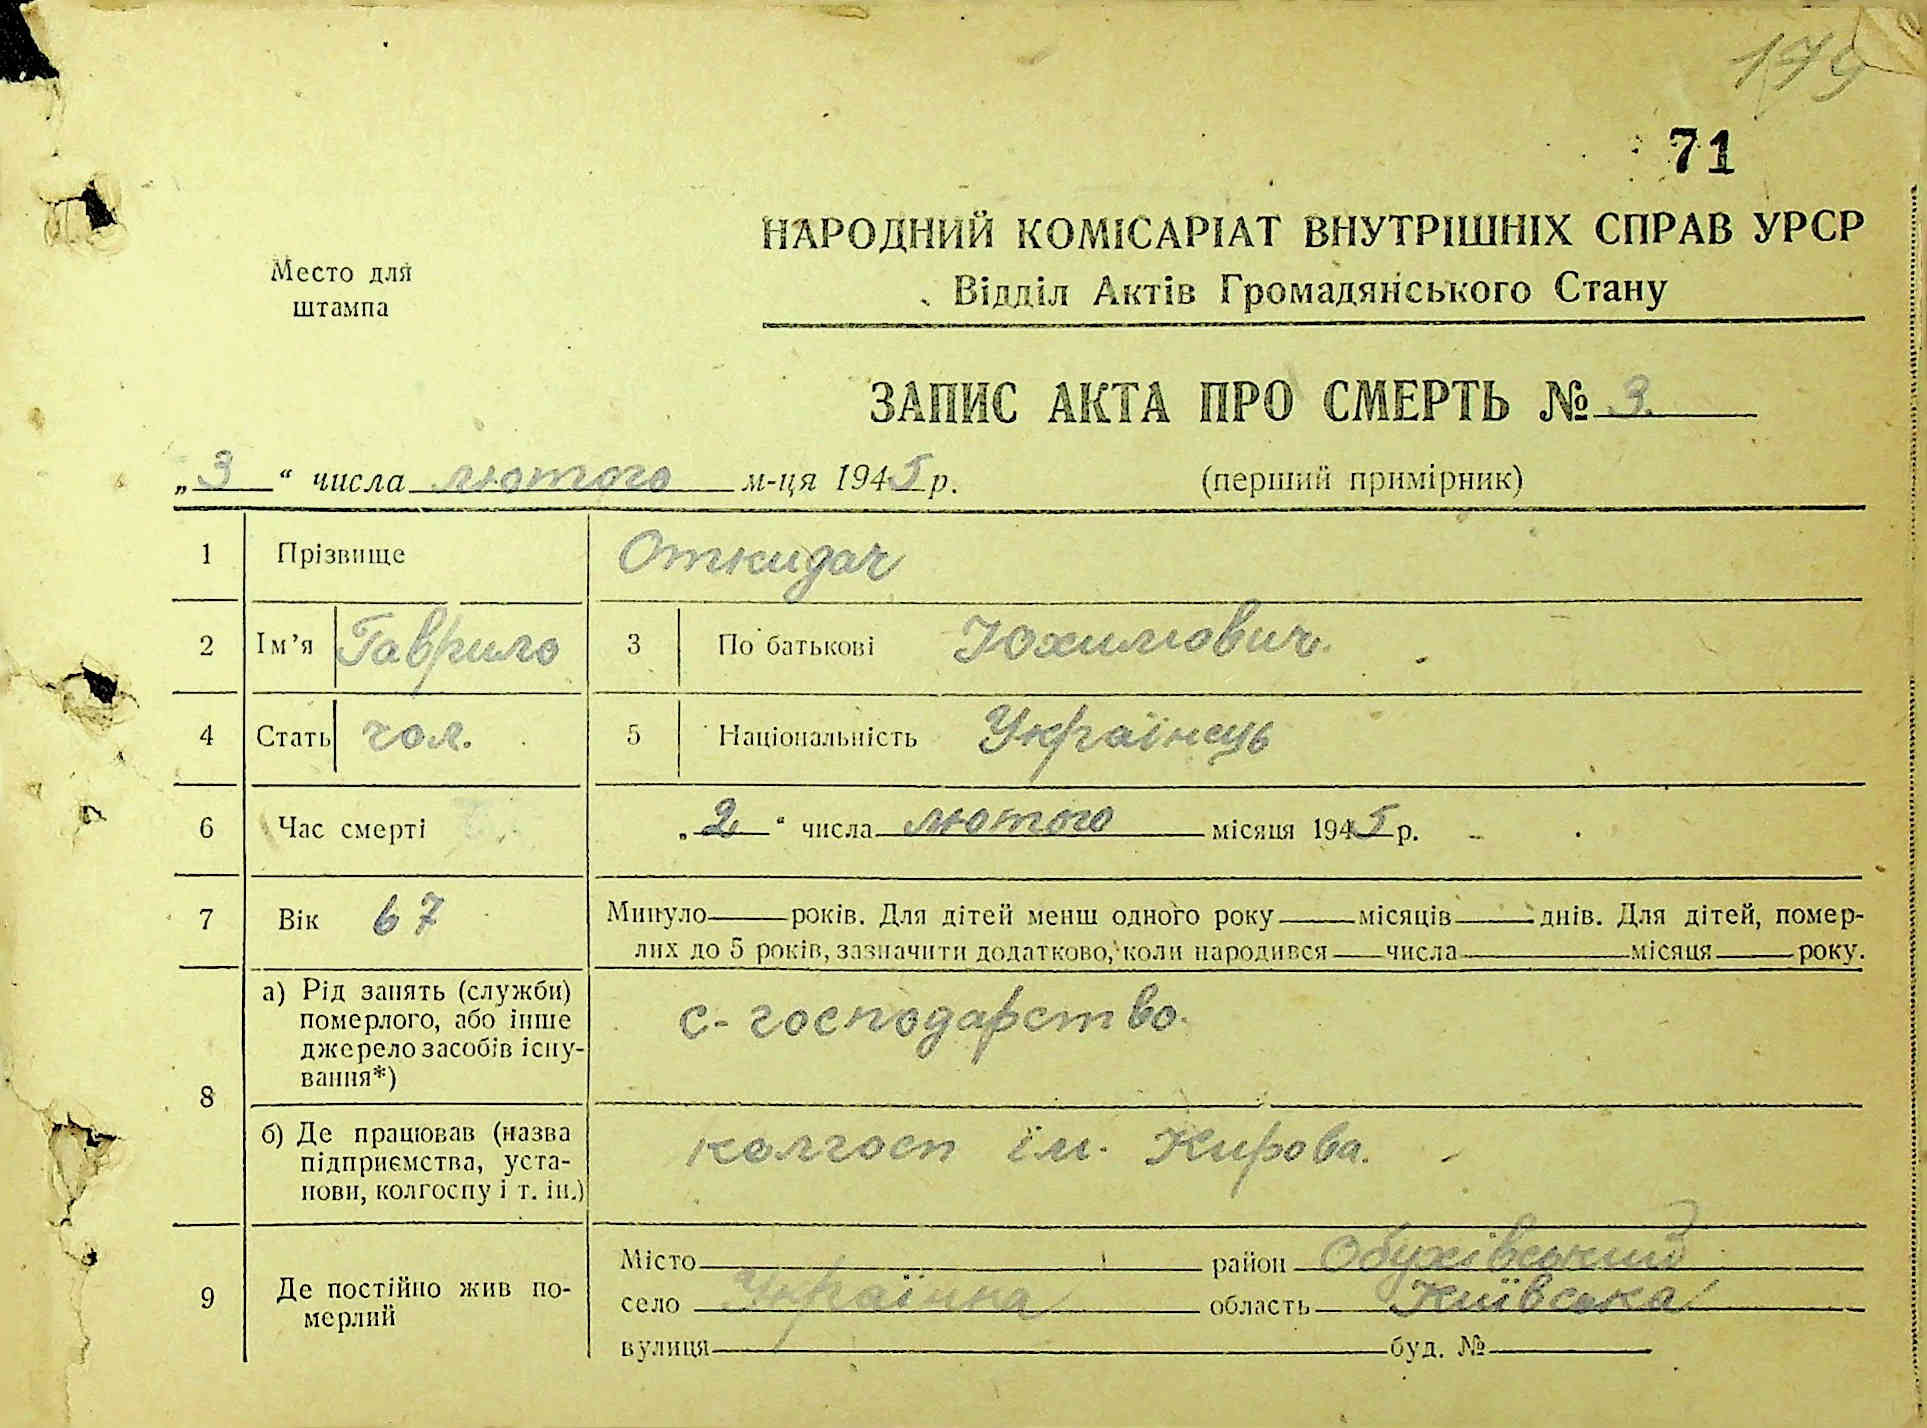 179
71
НАРОДНИЙ КОМІСАРІАТ ВНУТРІШНІХ СПРАВ УРСР
Место для
штампа
Відділ Актів Громадянського Стану
ЗАПИС АКТА ПРО СМЕРТЬ № 3.
„3“ числа лютого м-ця 1945 р. (перший примірник)
1 Прізвище Откидач
2 Ім’я Гаврило 3 По батькові Юхимович.
4 Стать чол. 5 Національність Українець
6 Час смерті „2“ числа лютого місяця 1945 р.
7 Вік 67 Минуло____років. Для дітей менш одного року____місяців____днів. Для дітей, помер-
лих до 5 років, зазначити додатково, коли народився____числа____місяця____року.
8 а) Рід занять (служби)
померлого, або інше
джерело засобів існу-
вання*) с-господарство.
б) Де працював (назва
підприємства, уста-
нови, колгоспу і т. ін.) колгосп ім. Кирова.
9 Де постійно жив по-
мерлий
Місто____ район Обухівський
село Українка область Київська
вулиця____ буд. №____